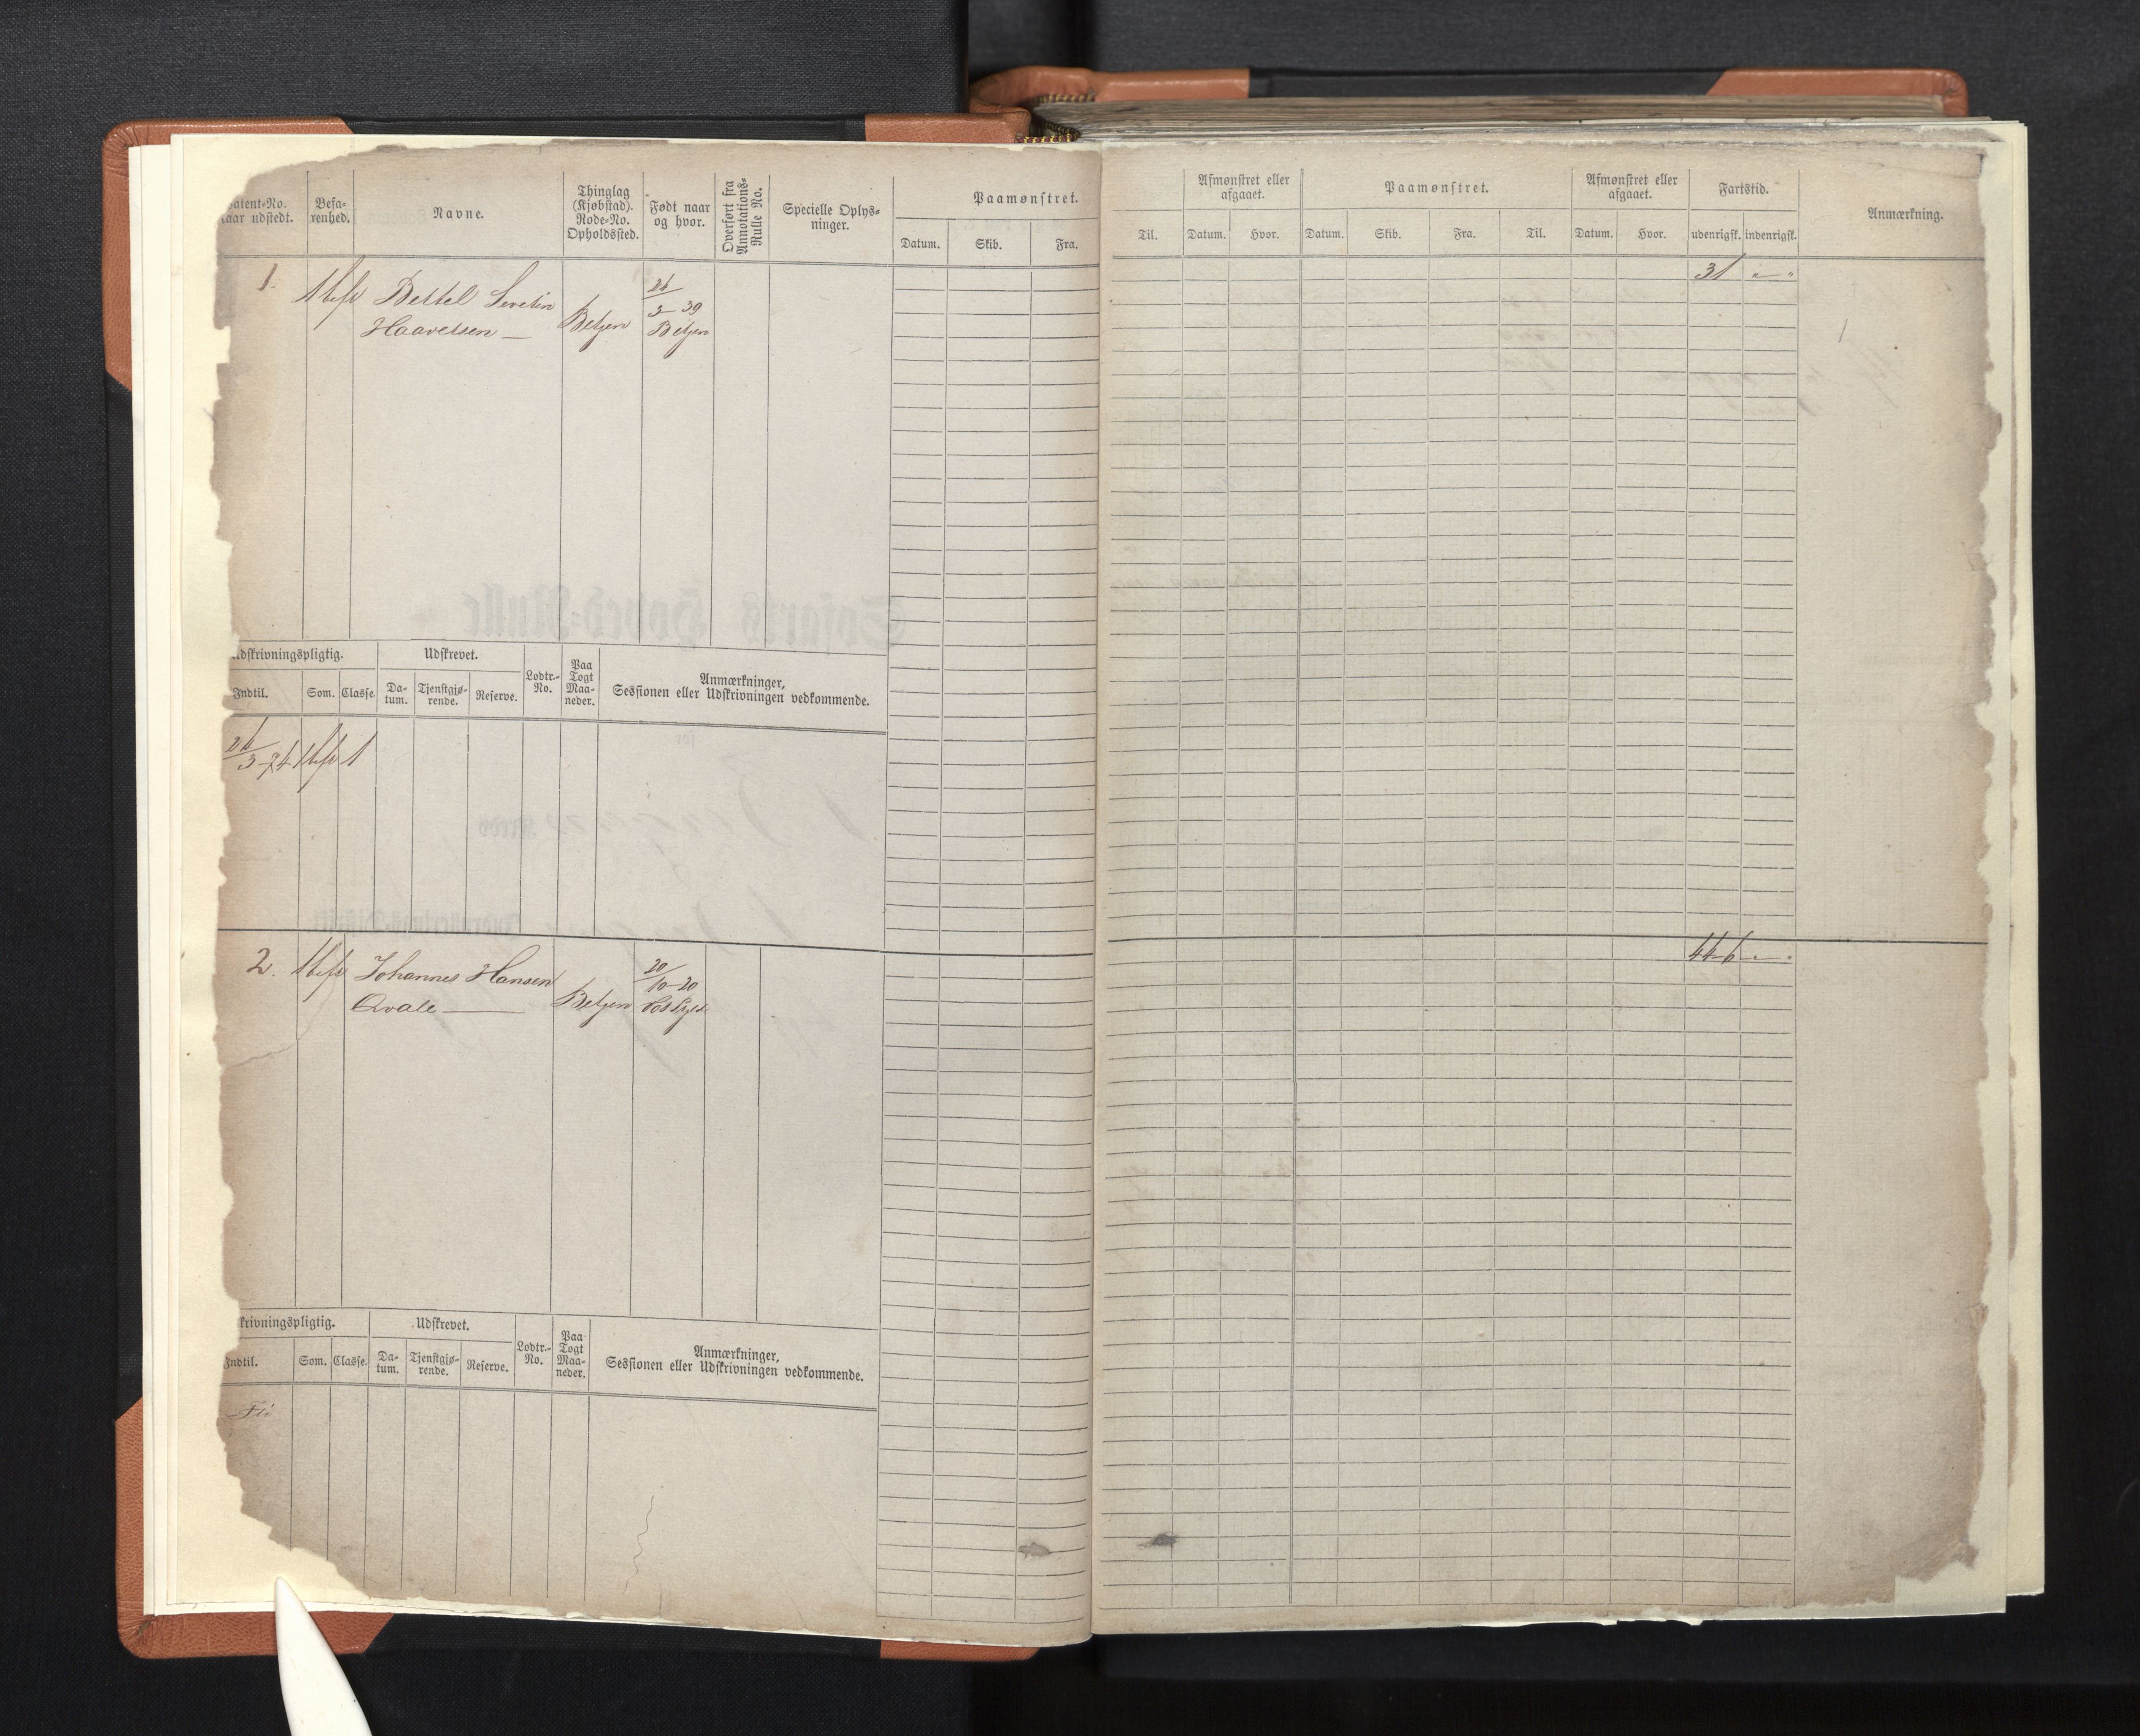 Patent-No.
naar udstedt.
Befa-
renhed.
Navne.
Thinglag
(Kjøbstad).
Rode-No.
Opholdssted.
Født naar
og hvor.
Overført fra
Annotations-
Rulle No.
Specielle Oplys-
ninger.
Paamønstret.
Datum. Skib. Fra.
Til.
Afmønstret eller
afgaaet.
Datum. Hvor.
Paamønstret.
Datum. Skib. Fra. Til.
Afmønstret eller
afgaaet.
Datum. Hvor.
Fartstid.
udenrigsk. indenrigsk.
Anmærkning.
1. Bertel Severin
Haaversen
Bergen
26/3-39
Bergen
31 " "
1
Udskrivningspligtig.
Indtil. Som. Classe.
Udskrevet.
Da-
tum.
Tjenstgjø-
rende.
Reserve.
Lodtr.-
No.
Paa
Togt
Maa-
neder.
Anmærkninger,
Sessionen eller Udskrivningen vedkommende.
26/3-74 1
2. Johannes Hansen
Qvale
Bergen
20/10-20
44-6 " "
krivningspligtig.
Indtil. Som. Classe.
Udskrevet.
Da-
tum.
Tjenstgjø-
rende.
Reserve.
Lodtr.-
No.
Paa
Togt
Maa-
neder.
Anmærkninger,
Sessionen eller Udskrivningen vedkommende.
Fri